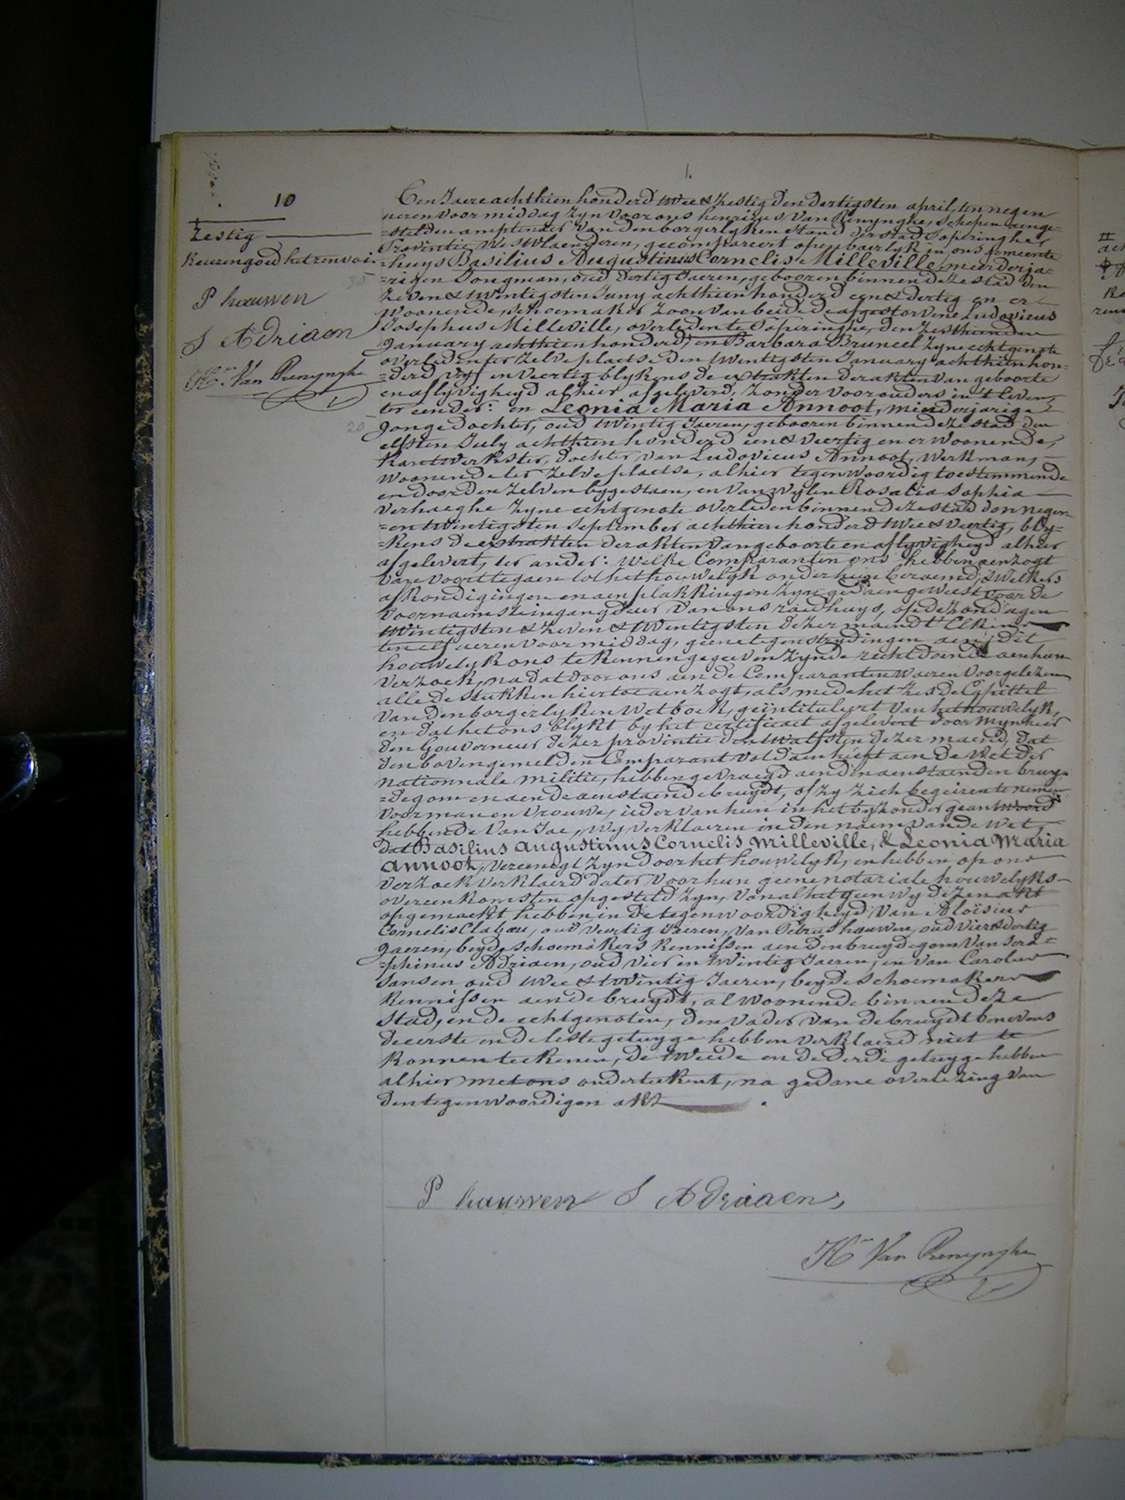 10
zestig
keurengoed het renvoi
P hauwen
S Adriaen
Hri Van Renynghe
Een Jaere achthien honderd twee & zestig den dertigsten april, ten negen
ueren voor middag zyn voor ons henricus Van Renynghe, schepen aenge-
=stelden amptenaer van den borgerlyken stand der stad Poperinghe,
Provintie WestVlaenderen, gecompareert openbaerlyk in ons gemeente
=huys Basilius Augustinus Cornelis Milleville, meerderja-
=rigen Jongman, oud dertig Jaeren, gebooren binnen deze stad den
zeven & twintigsten Juny achthien honderd een & dertig en er
Woonende, schoemaker zoon van beide de afgestorvene Ludovicus
Josephus Milleville, overleden te Poperinghe, den zesthienden
January achthien honderd en Barbara Bruneel zyne echtgenote
overleden ter zelve plaetse den twintigsten January achthien hon-
=derd vyf en veertig blykens de extrakten der akten van geboorte
en aflyvigheyd alhier afgeleverd, zonder voorouders in 't leven,
ter eender: en Leonia Maria Annoot, minderjarige
Jonge dochter, oud twintig Jaeren, gebooren binnen deze stad den
elfsten July achthien honderd een & veertig en er woonende,
kantwerkster, dochter van Ludovicus Annoot, werkman,
woonende ter zelve plaetse, alhier tegenwoordig toestemmende
en door den zelven bygestaen, en van wylen Rosalia Sophia
Verhaeghe zyne echtgenote overleden binnen deze stad den negen
=en twintigsten september achthien honderd twee & veertig, bly-
=kens de extrakten der akten van geboorte en aflyvigheyd alhier
afgelevert, ter ander: Welke Comparanten ons hebben aenzogt
van voort te gaen tot het houwelyk onder hun beraemd, & welkers
afkondigingen en aenplakkingen zyn gedaen geweest voor de
voornaemste ingangdeur van ons raedhuys, op de zondagen
twintigsten & zeven & twintigsten dezer maendt telkens
ten elf ueren voor middag, geene tegenstrydingen aen dit
houwelyk ons te kennen gegeven zynde recht doende aen hun
verzoek, na dat door ons aen de Comparanten waeren voorgelezen
alle de stukken hiertoe aenzogt, als mede het zesde Capittel
van den borgerlyken Wetboek, geintitulyert van het houwelyk,
en dat het ons blykt by het certificaet afgelevert door Mynheer
den Gouverneur dezer provintie den twalfsten dezer maend, dat
den bovengemelden Comparant voldaen heeft aen de Wet der
nationnale militie, hebben gevraegd aen den aenstaenden bruy-
=degom en aen de aenstaende bruydt, of zy zich begeiren te nemen
voor man en vrouwe, ieder van hun in het byzonder geantwoord
hebbende van Jae, Wy verklaeren in den naem van de Wet,
dat Basilius Augustinus Cornelis Milleville, & Leonia Maria
Annoot, vereenigt zyn door het houwelyk, en hebben op ons
verzoek verklaerd dat er voor hun geene notariale houwelyks-
overeenkomsten opgesteld zyn, van al het geen wy dezen akt
opgemaekt hebben in de tegenwoordigheyd, van Aloïsius
Cornelis Clabau, oud veertig Jaeren, van Petrus hauwen, oud vier & dertig
Jaeren, beyde schoemakers kennissen aen den bruydegom van Sera-
=phinus Adriaen, oud vier en twintig Jaeren, en van Carolus
Jansen oud twee & twintig Jaeren, beyde schoemakers
kennissen aen de bruydt, al woonende binnen deze
stad, en de echtgenoten, den vader van de bruydt benevens
de eerste en de leste getuyge hebben verklaerd niet te
konnen teekenen, de tweede en de derde getuyge hebben
alhier met ons onderteekent, na gedane overlezing van
den tegenwoordigen akt
P hauwen S Adriaen,
Hri Van Renynghe